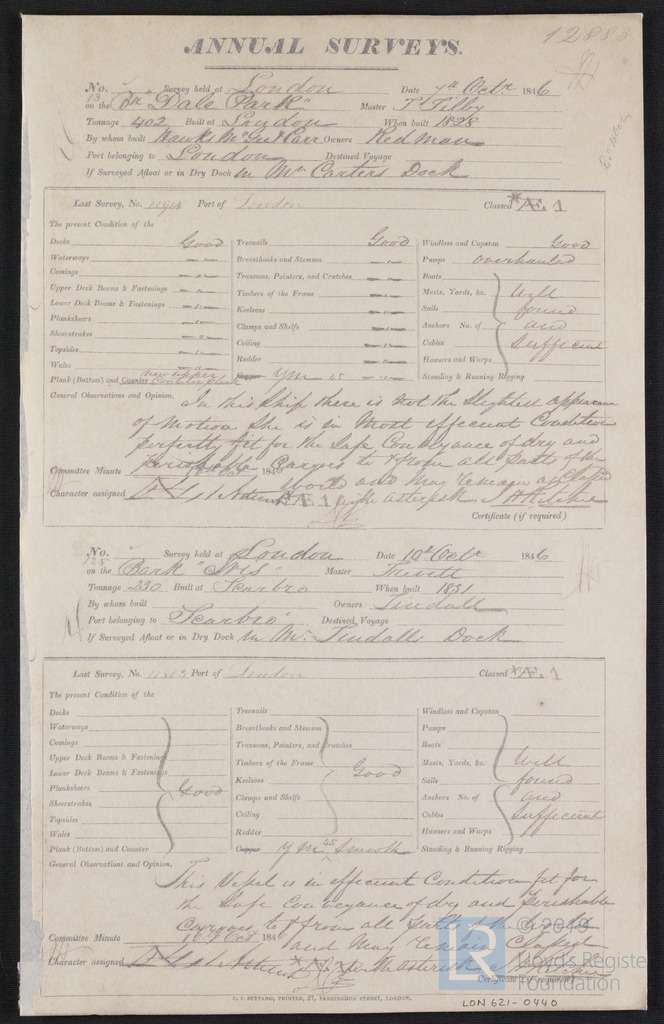 12883
ANNUAL SURVEYS.
No. 13 Survey held at London Date 7th Octr 1846
on the Br "Dale Park" Master T Tilby
Tonnage 402 Built at London When built 1828
By whom built Owners Redman
Port belonging to London Destined Voyage
If Surveyed Afloat or in Dry Dock in Mr Carters Dock
Last Survey, No. Port of London Classed *Æ. 1
The present Condition of the
Decks Good Treenails Good Windlass and Capstan Good
Waterways Breasthooks and Stemson Pumps overhauled
Comings Transoms, Pointers, and Crutches Boats
Upper Deck Beams & Fastenings Timbers of the Frame Masts, Yards, &c. Well
Lower Deck Beams & Fastenings Keelsons Sails found
Planksheers Clamps and Shelfs Anchors No. of and
Sheerstrakes Ceiling Cables Sufficient
Topsides Rudder Hawsers and Warps
Wales Copper YM 45 Standing & Running Rigging
Plank (Bottom) and Counter
General Observations and Opinion, In this Ship there is not the Slightest appearance
of Motion She is in Most efficient Condition
perfectly fit for the Safe Conveyance of dry and
Perishable Cargoes to & from all parts of the
World and May remain as Classed
Committee Minute 184
Character assigned Æ 1 with asterisk
Certificate (if required)
No. 125 Survey held at London Date 10th Octr 1846
on the Bark "Isis" Master Trivett
Tonnage 230 Built at Scarbro When built 1831
By whom built Owners Tindall
Port belonging to Scarbro' Destined Voyage
If Surveyed Afloat or in Dry Dock in Mr Tindalls Dock
Last Survey, No. Port of London Classed *Æ. 1
The present Condition of the
Decks Treenails Windlass and Capstan
Waterways Breasthooks and Stemson Pumps
Comings Transoms, Pointers, and Crutches Boats
Upper Deck Beams & Fastenings Timbers of the Frame Good Masts, Yards, &c. Well
Lower Deck Beams & Fastenings Keelsons Sails found
Planksheers Good Clamps and Shelfs Anchors No. of and
Sheerstrakes Ceiling Cables Sufficient
Topsides Rudder Hawsers and Warps
Wales Copper YM 45 Smooth Standing & Running Rigging
Plank (Bottom) and Counter
General Observations and Opinion, This Vessel is in efficient Condition fit for
the Safe Conveyance of dry and Perishable
Cargoes to & from all parts of the World
and May remain Classed
Committee Minute 184
Character assigned with asterisk
Certificate (if required)
C. F. SEYFANG, PRINTER, 57, FARRINGDON STREET, LONDON.
LON 621-0440
© 2019
Lloyd's Register
Foundation